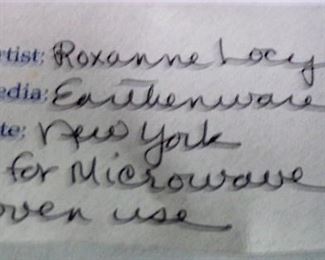 rtist: Roxanne Locy
edia: Earthenware
te: New York
for Microwave
oven use